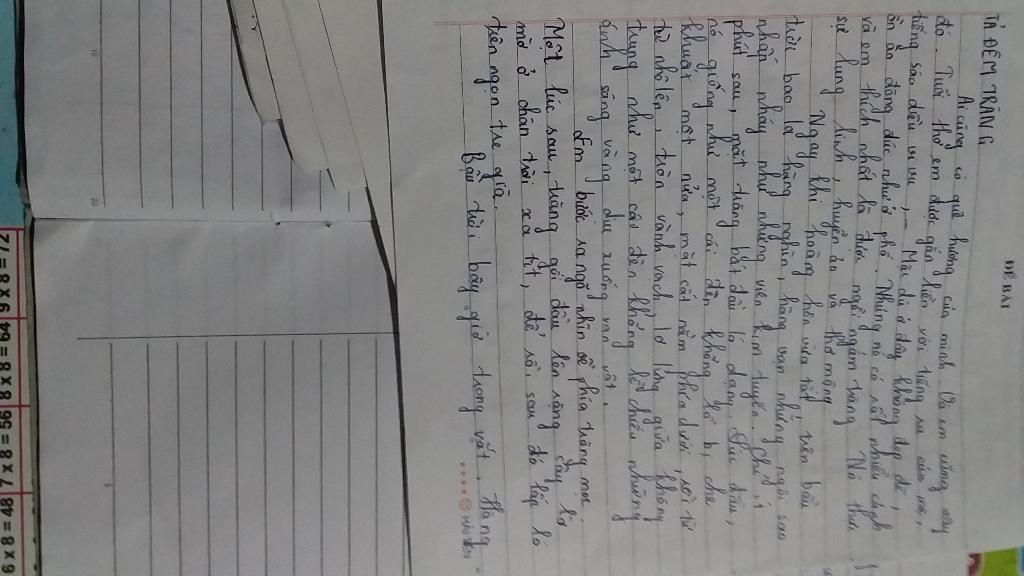 ĐỀ BÀI
TẢ ĐÊM TRĂNG
Ai cũng có quê hương của mình. Là em cũng vậy
đó. Tuổi thơ em được gắn liền với tiếng ru của mẹ,
tiếng sáo diều vi vu, Mặc dù ở đây không đẹp đẽ,
ồn ào đông đúc như ở phố. Nhưng nó có rất nhiều cảnh
và em thích nhất là được ngồi ngắm trăng Nó thư
sẽ lung linh, huyền ảo và thơ mộng
Ngay khi hoàng hôn vừa tắt, trên bầu
trời bao la hàng nghìn, hàng vạn những ngôi sao
nhấp nháy như những viên kim tuyến. Chỉ ít
phút sau, mặt trăng bắt đầu lộ dạng. Lúc đầu,
nó giống như một cái đĩa khổng lồ bị che
khuất một nửa, mặt cắt nằm phía dưới, rồi từ
từ nhô lên, tròn vành vạch, lơ lửng giữa không
trung như một cái đèn khổng lồ chiếu những
ánh sáng vàng dịu xuống vạn vật.
Em bước ra ngõ nhìn về phía trăng mọc
Một lúc sau, trăng gối đầu lên rặng cây lờ
mờ ở chân trời xa tít, để rồi sau đó lấp ló
trên ngọn tre già.
Bầu trời bây giờ trong vắt. Hàng
6 x 8 = 48
7 x 8 = 56
8 x 8 = 64
9 x 8 = 72